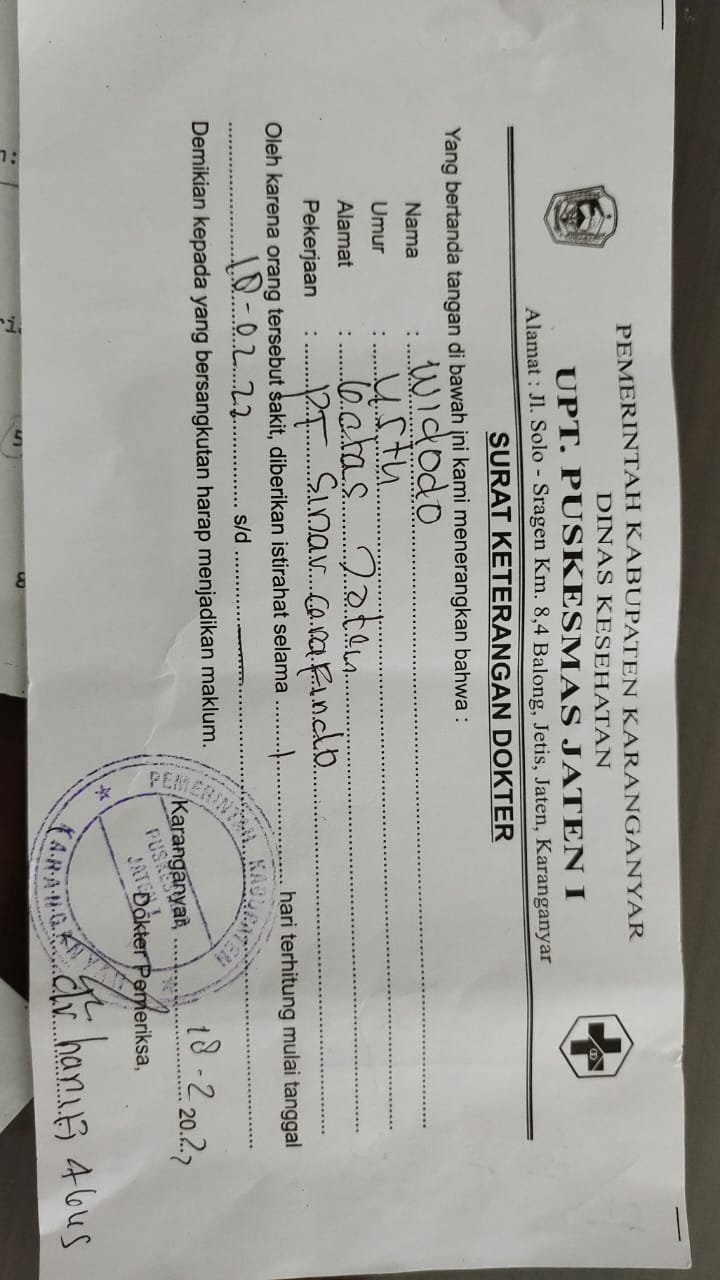 PEMERINTAH KABUPATEN KARANGANYAR
DINAS KESEHATAN
UPT. PUSKESMAS JATEN I
Alamat : Jl. Solo - Sragen Km. 8,4 Balong, Jetis, Jaten, Karanganyar
SURAT KETERANGAN DOKTER
Yang bertanda tangan di bawah ini kami menerangkan bahwa :
Nama : Widodo
Umur : 45 th
Alamat : Jaten
Pekerjaan : PT Sinar
Oleh karena orang tersebut sakit, diberikan istirahat selama 1 hari terhitung mulai tanggal
18-02 22 s/d —
Demikian kepada yang bersangkutan harap menjadikan maklum.
Karanganyar, 18-2 2022
Dokter Pemeriksa,
dr hanif Agus
PEMERINTAH KABUPATEN
PUSKESMAS
JATEN I
KARANGANYAR